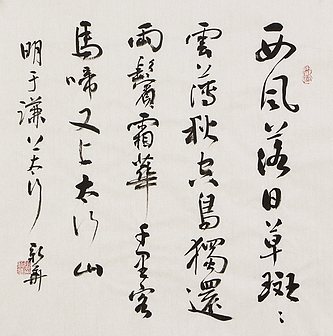 西風落日草斑〻
雲薄秋容鳥獨還
兩鬢霜華千里客
馬啼又上太行山
明于謙上太行